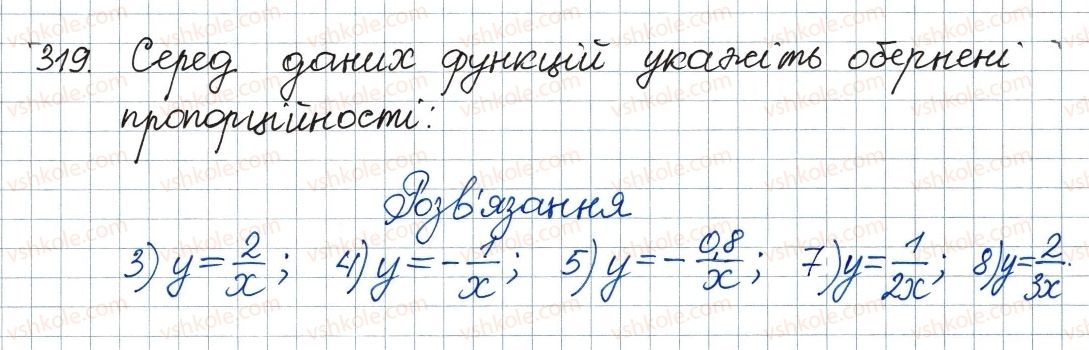 319. Серед даних функцій укажіть обернені
пропорційності:
Розв'язання
3) y = 2/x; 4) y = -1/x; 5) y = -0,8/x; 7) y = 1/2x; 8) y = 2/3x.